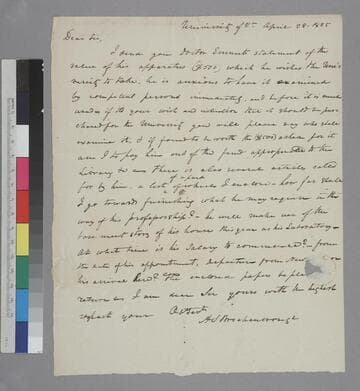 University of Va. April 28. 1825
Dear Sir,
I send you Doctor Emmets statement of the
value of his apparatus ($500) which he wishes the Uni-
versity to take. he is anxious to have it examined
by competent persons immediately, and before it is used
under if its your wish and intention that it should be pur-
chased for the University you will please say who shall
examine it & if found to be worth the ($500) asked for it
am I to pay him out of the fund appropriated to the
Library &c and there is also several articles called
for by him. a list of a part of which I enclose – how far shall
I go towards furnishing what he may require in the
way of his professorship? – he will make use of the
basement story of his house this year as his Laboratory –
At what time is his Salary to commence? – from
the date of his appointment, departure from New or
his arrival here? the enclosed papers be pleased
return as I am dear Sir yours with the highest
respect your Obt Sert
A. S. Brockenbrough